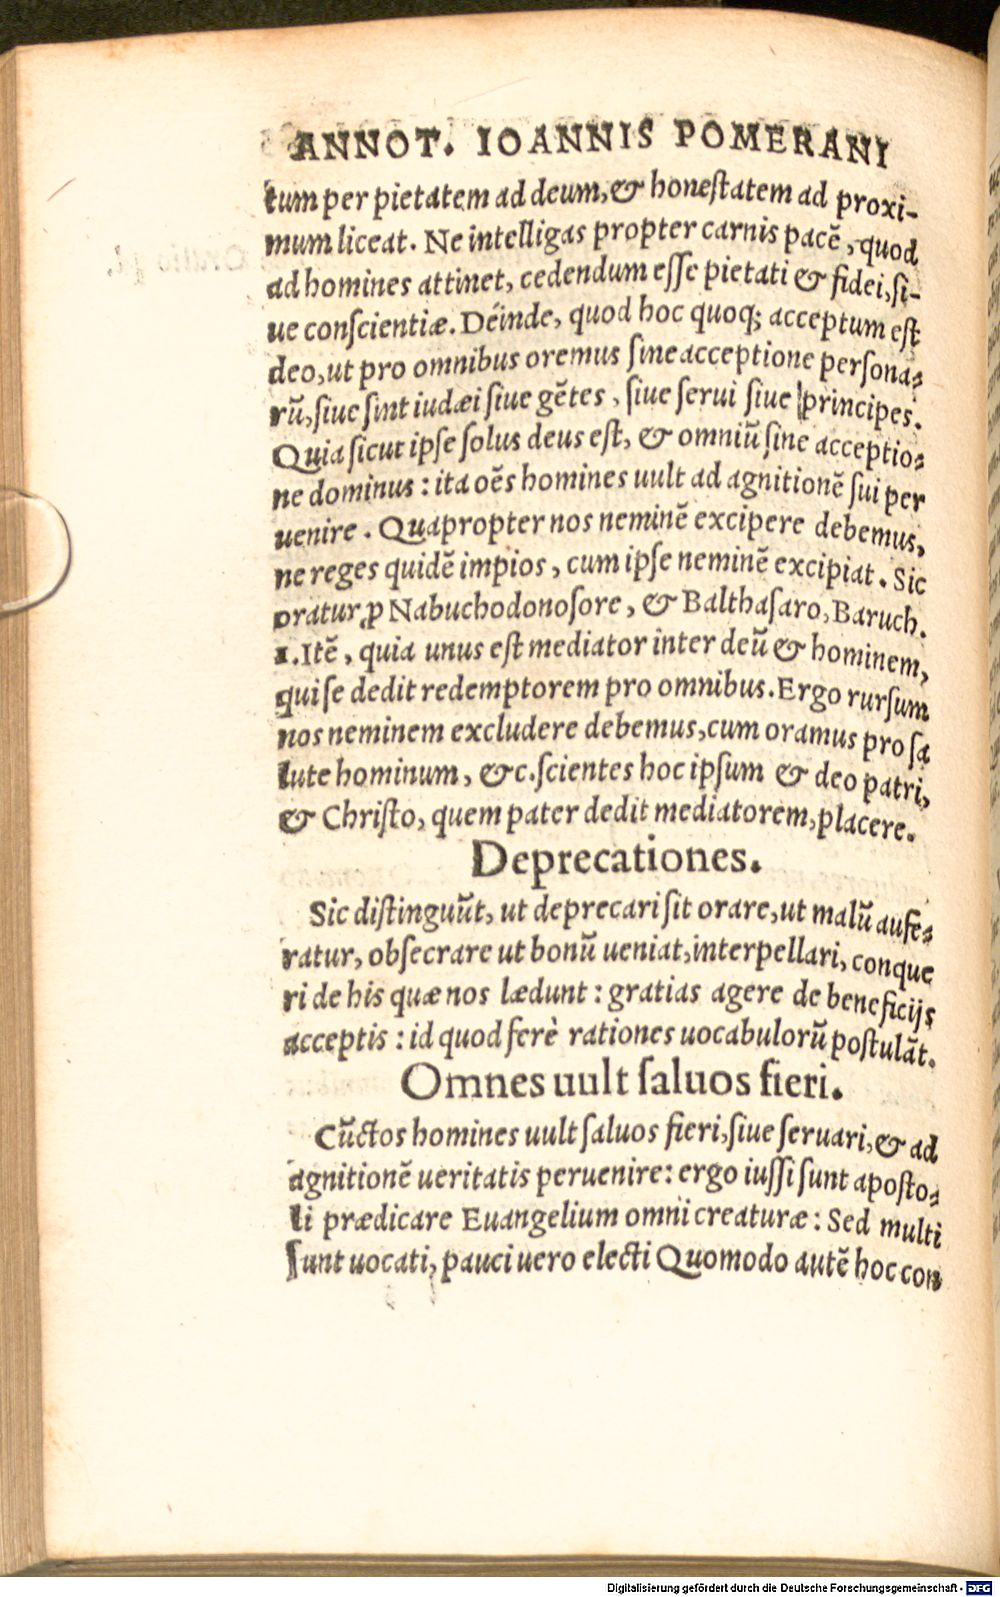 ANNOT. IOANNIS POMERANI
tum per pietatem ad deum, & honeſtatem ad proxi-
mum liceat. Ne intelligas propter carnis pacē, quod
ad homines attinet, cedendum eſſe pietati & fidei, ſi-
ue conſcientiæ. Deinde, quod hoc quoq; acceptum eſt
deo, ut pro omnibus oremus ſine acceptione perſona-
rū, ſiue ſint iudæi ſiue gētes, ſiue ſerui ſiue principes.
Quia ſicut ipſe ſolus deus eſt, & omniū ſine acceptio-
ne dominus: ita oēs homines uult ad agnitionē ſui per
uenire. Quapropter nos neminē excipere debemus,
ne reges quidē impios, cum ipſe neminē excipiat. Sic
oratur ꝓ Nabuchodonoſore, & Balthaſaro, Baruch.
1. Itē, quia unus eſt mediator inter deū & hominem,
qui ſe dedit redemptorem pro omnibus. Ergo rurſum
nos neminem excludere debemus, cum oramus pro ſa
lute hominum, &c. ſcientes hoc ipſum & deo patri,
& Chriſto, quem pater dedit mediatorem, placere.
Deprecationes.
Sic diſtinguūt, ut deprecari ſit orare, ut malū aufe-
ratur, obſecrare ut bonū ueniat, interpellari, conque
ri de his quæ nos lædunt: gratias agere de beneficijs
acceptis: id quod ferè rationes uocabulorū poſtulāt.
Omnes uult ſaluos fieri.
Cūctos homines uult ſaluos fieri, ſiue ſeruari, & ad
agnitionē ueritatis peruenire: ergo iuſſi ſunt apoſto-
li prædicare Euangelium omni creaturæ: Sed multi
ſunt uocati, pauci uero electi Quomodo autē hoc con
Digitalisierung gefördert durch die Deutsche Forschungsgemeinschaft - DFG